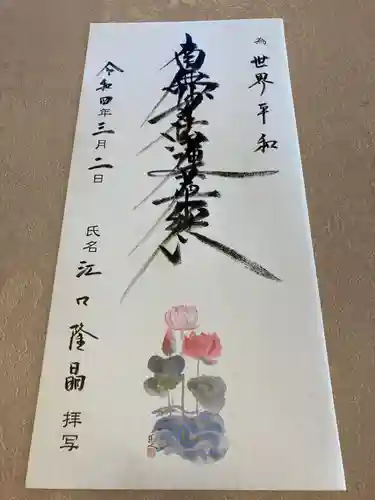 為 世界平和
南無妙法蓮華経
令和四年三月二日
氏名 江口隆晶 拝写